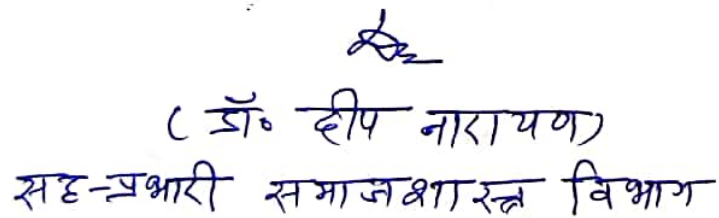 ( डॉ॰ दीप नारायण)
सह-प्रभारी समाजशास्त्र विभाग